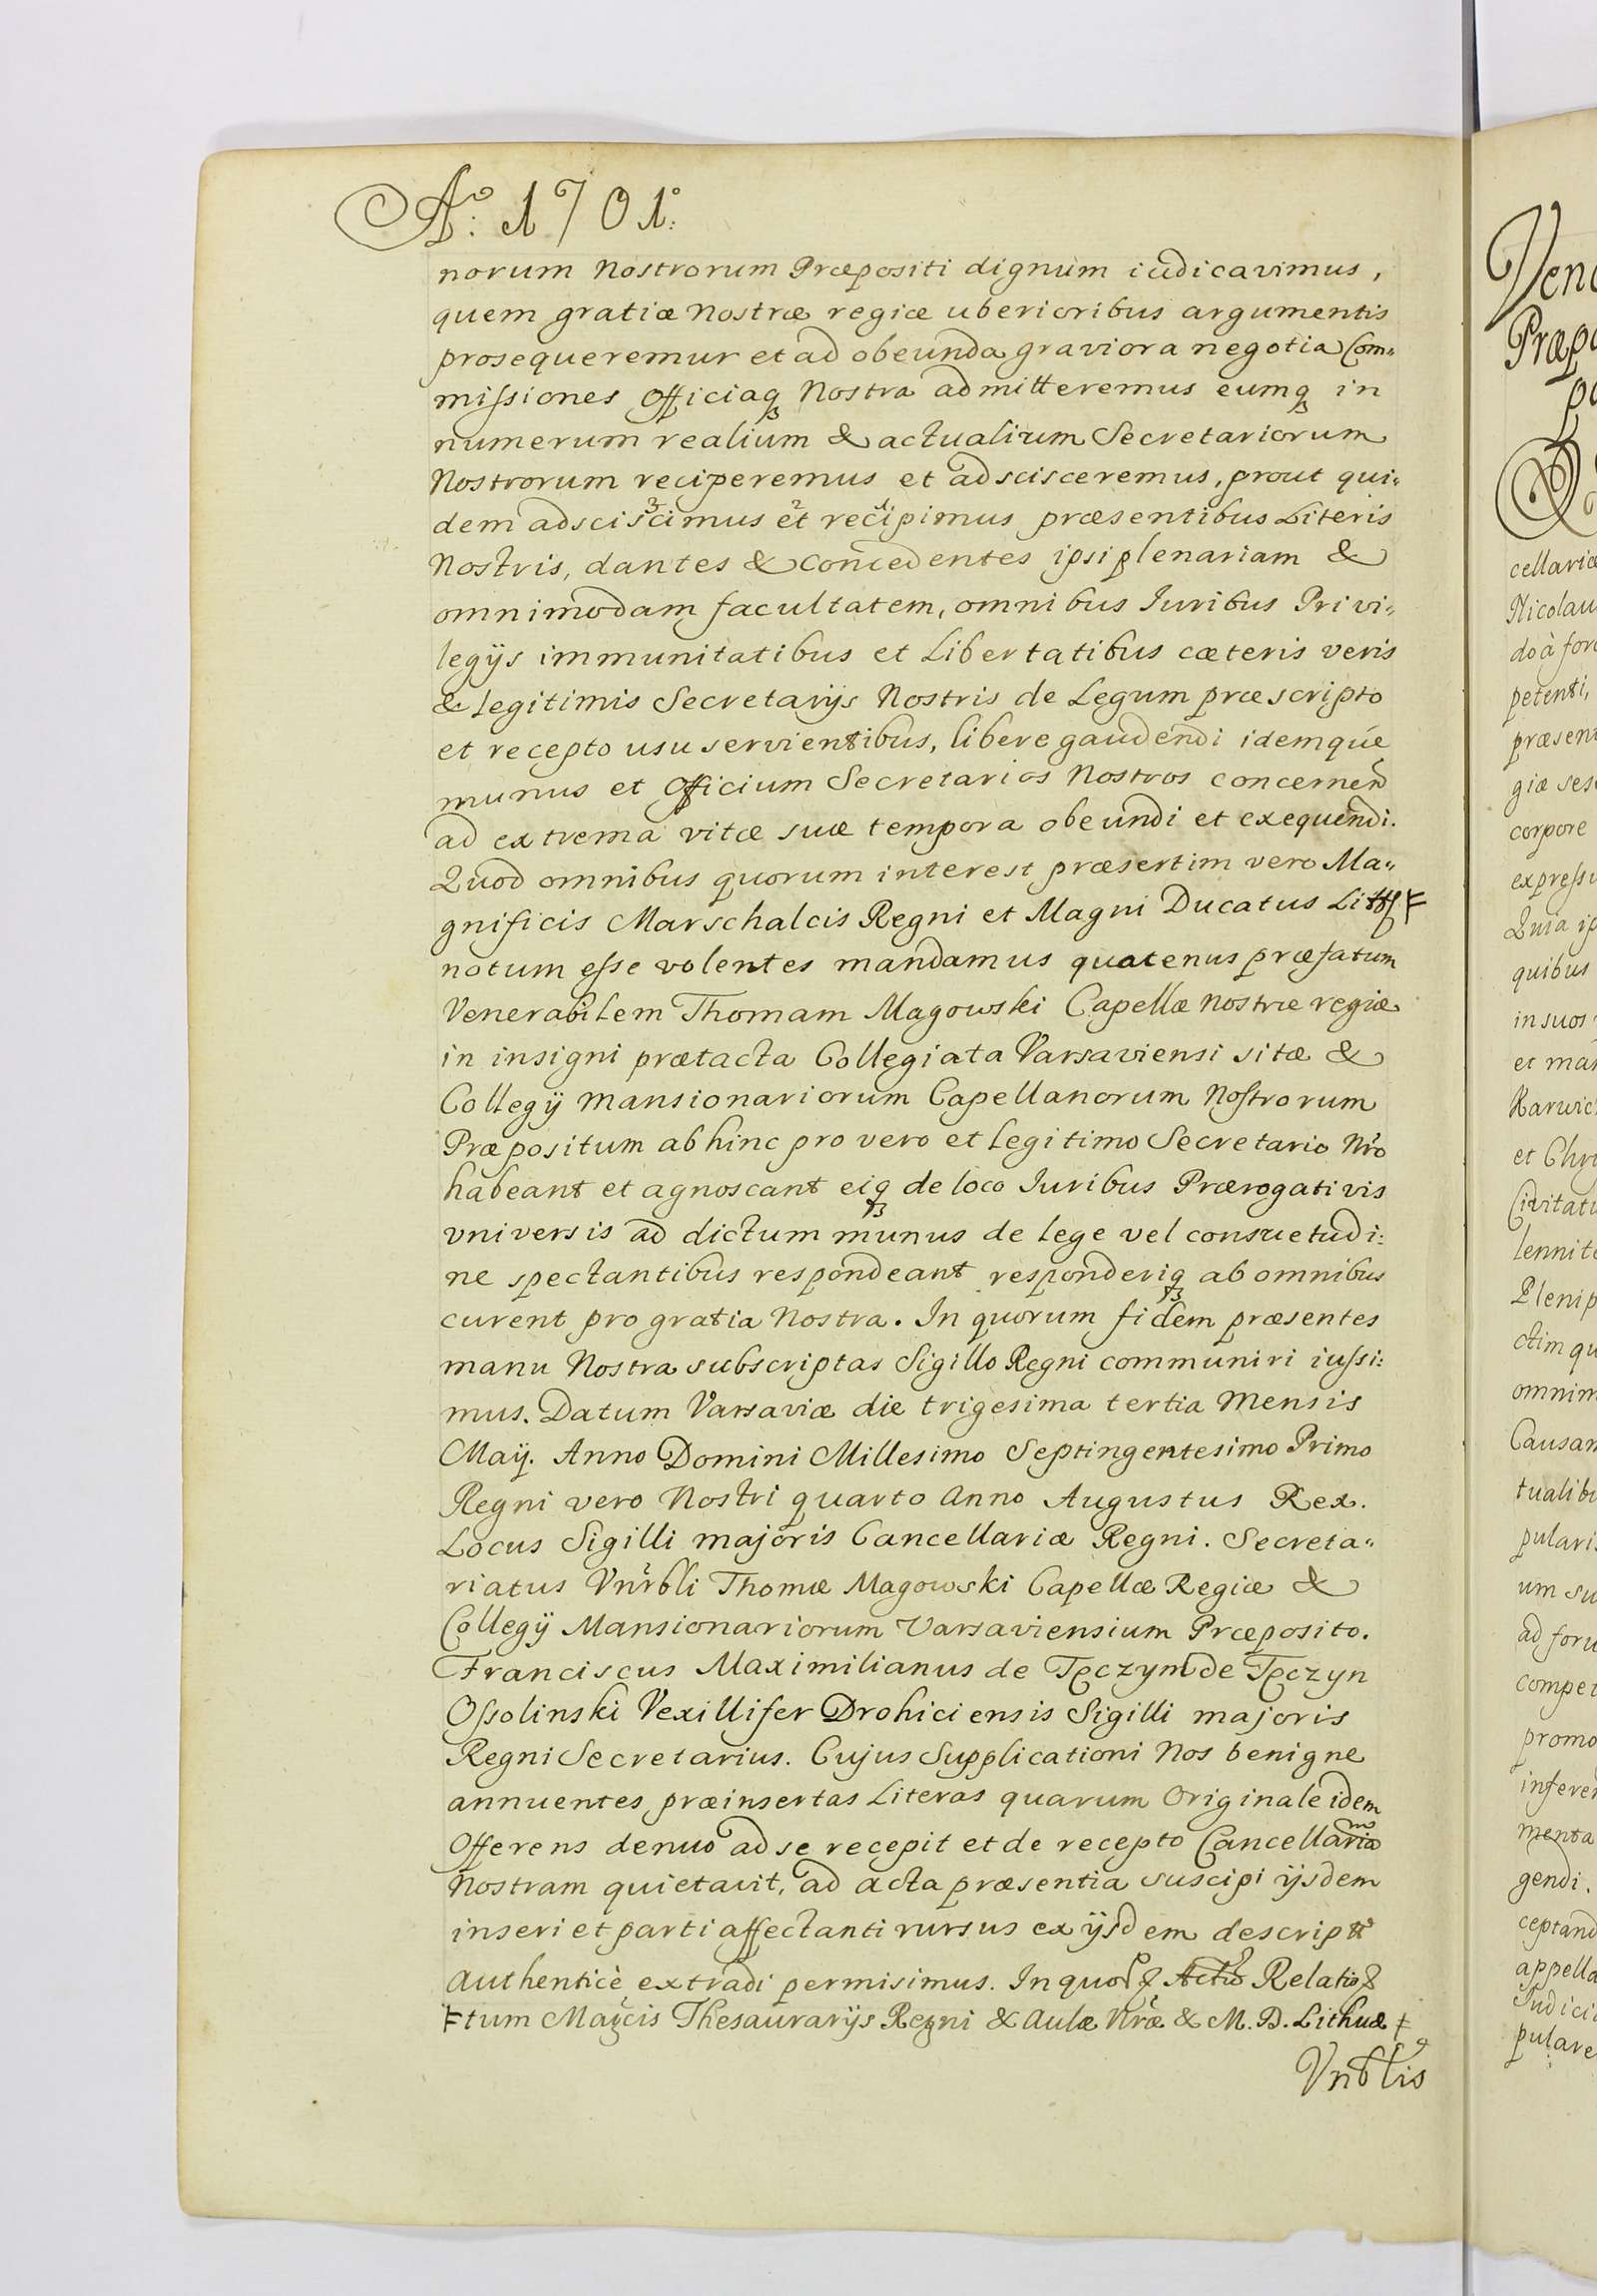 Aº: 1701º:
norum Nostrorum Præpositi dignum iudicavimus,
quem gratiæ Nostræ regiæ uberioribus argumentis
prosequeremur et ad obeunda graviora negotia Com=
missiones Officiaq3 Nostra admitteremus eumq3 in
numerum realium & actualium Secretariorum
Nostrorum reciperemus et adscisceremus, prout qui=
dem adsciscimus et recipimus præsentibus Literis
Nostris, dantes & concedentes ipsi plenariam &
omnimodam facultatem, omnibus Iuribus Privi=
legijs immunitatibus et Libertatibus cæteris veris
& legitimis Secretarijs Nostris de Legum præscripto
et recepto usu servientibus, libere gaudendi idemque
munus et Officium Secretarios Nostros concernen
ad extrema vitæ suæ tempora obeundi et exequendi.
Quod omnibus quorum interest præsertim vero Ma=
gnificis Marschalcis Regni et Magni Ducatus
notum esse volentes mandamus quatenus præfatum
Venerabilem Thomam Magowski Capellæ nostræ regiæ
in insigni prætacta Collegiata Varsaviensi sitæ &
Collegij Mansionariorum Capellanorum Nostrorum
Præpositum abhinc pro vero et legitimo Secretario Nro
habeant et agnoscant eiq3 de loco Iuribus Prærogativis
vniversis ad dictum munus de lege vel consuetudi:
ne spectantibus respondeant responderiq3 ab omnibus
curent pro gratia Nostra. In quorum fidem præsentes
manu Nostra subscriptas Sigillo Regni communiri iussi:
mus. Datum Varsaviæ die trigesima tertia Mensis
Maij. Anno Domini Millesimo Septingentesimo Primo
Regni vero Nostri quarto Anno Augustus Rex.
Locus Sigilli majoris Cancellariæ Regni. Secreta=
riatus Vnrbli Thomæ Magowski Capellæ Regiæ &
Collegij Mansionariorum Varsaviensium Præposito.
Franciscus Maximilianus de Tęczyn de Tęczyn
Ossolinski Vexillifer Drohiciensis Sigilli majoris
Regni Secretarius. Cujus Supplicationi Nos benigne
annuentes præinsertas Literas quarum Originale idem
Offerens denuo ad se recepit et de recepto Cancellariam
Nostram quietavit, ad acta præsentia suscipi ijsdem
inseri et parti affectanti rursus ex ijsdem
authenticè extradi permisimus. In Relatio
tum Magcis Thesaurarijs Regni & Aulæ Nræ & M. D. Lithuæ
Vnbtlis
Præpo
cellariæ
Nicolau
do à foro
petenti,
præsent
giæ
corpore
Quia
quibus
in suos
et man
et Chri
Civitat
omnim
Causar
tualibu
pularis
um su
ad foru
compet
promo
menta
gendi.
ceptand
appella
Judici
pulare